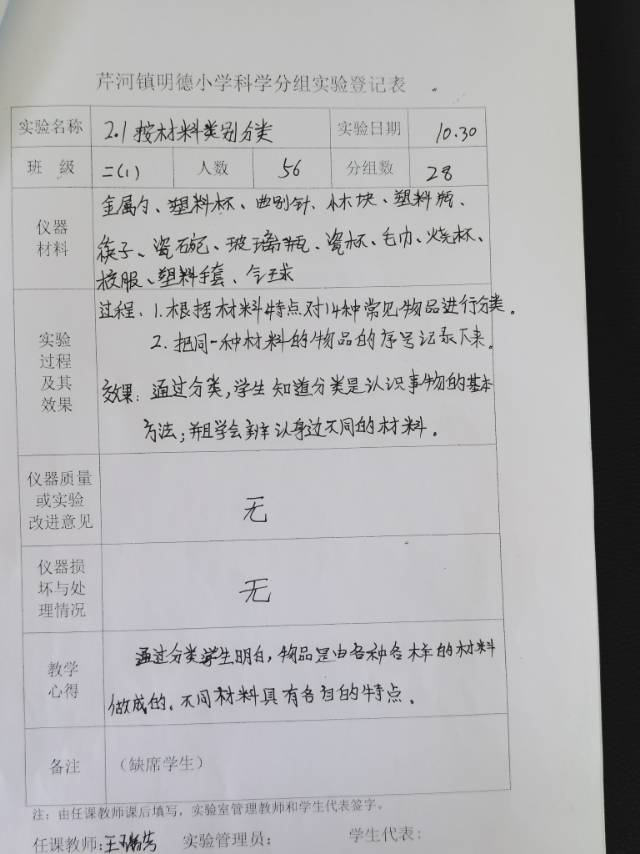 芹河镇明德小学科学分组实验登记表
实验名称 2.1按材料类别分类 实验日期 10.30
班 级 二(1) 人数 56 分组数 28
仪器材料 金属勺、塑料杯、曲别针、木块、塑料瓶、
筷子、瓷碗、玻璃瓶、瓷杯、毛巾、烧杯、
校服、塑料手套、气球
实验过程及其效果 过程：1.根据材料特点对14种常见物品进行分类。
2.把同一种材料的物品的序号记录下来。
效果：通过分类,学生知道分类是认识事物的基本
方法;并且学会辨认身边不同的材料。
仪器质量或实验改进意见 无
仪器损坏与处理情况 无
教学心得 通过分类学生明白,物品是由各种各样的材料
做成的。不同材料具有各自的特点。
备注 （缺席学生）
注：由任课教师课后填写，实验室管理教师和学生代表签字。
任课教师: 王 实验管理员: 学生代表: